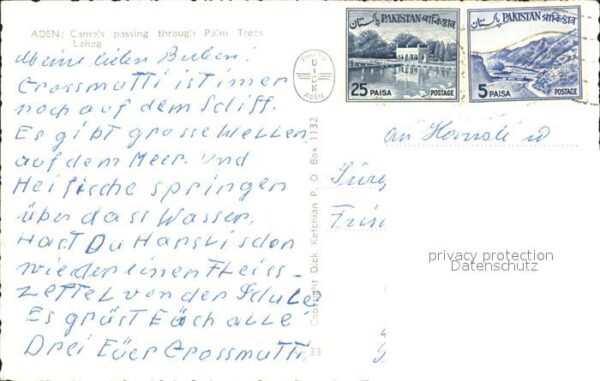 ADEN: Camels passing through Palm Trees
Lahag
Meine lieben Buben!
Grossmutti ist imer
noch auf dem Sciff.
Es gibt grosse Wellen
auf dem Meer und
Heifische springen
über dass Wasser.
Hast Du Hansli scon
wieder einen Fleiss-
Zettel von der Schule
Es grüst Eüch alle
Drei Eüer Grossmutti.
PHOTO
D
C
K
ADEN
Copyright Dick Ketchian P. O. Box 1132
33
پاکستان PAKISTAN পাকিস্তান
25 PAISA POSTAGE
پاکستان PAKISTAN পাকিস্তান
5 PAISA POSTAGE
an Hansli u
Jürg
privacy protection
Datenschutz